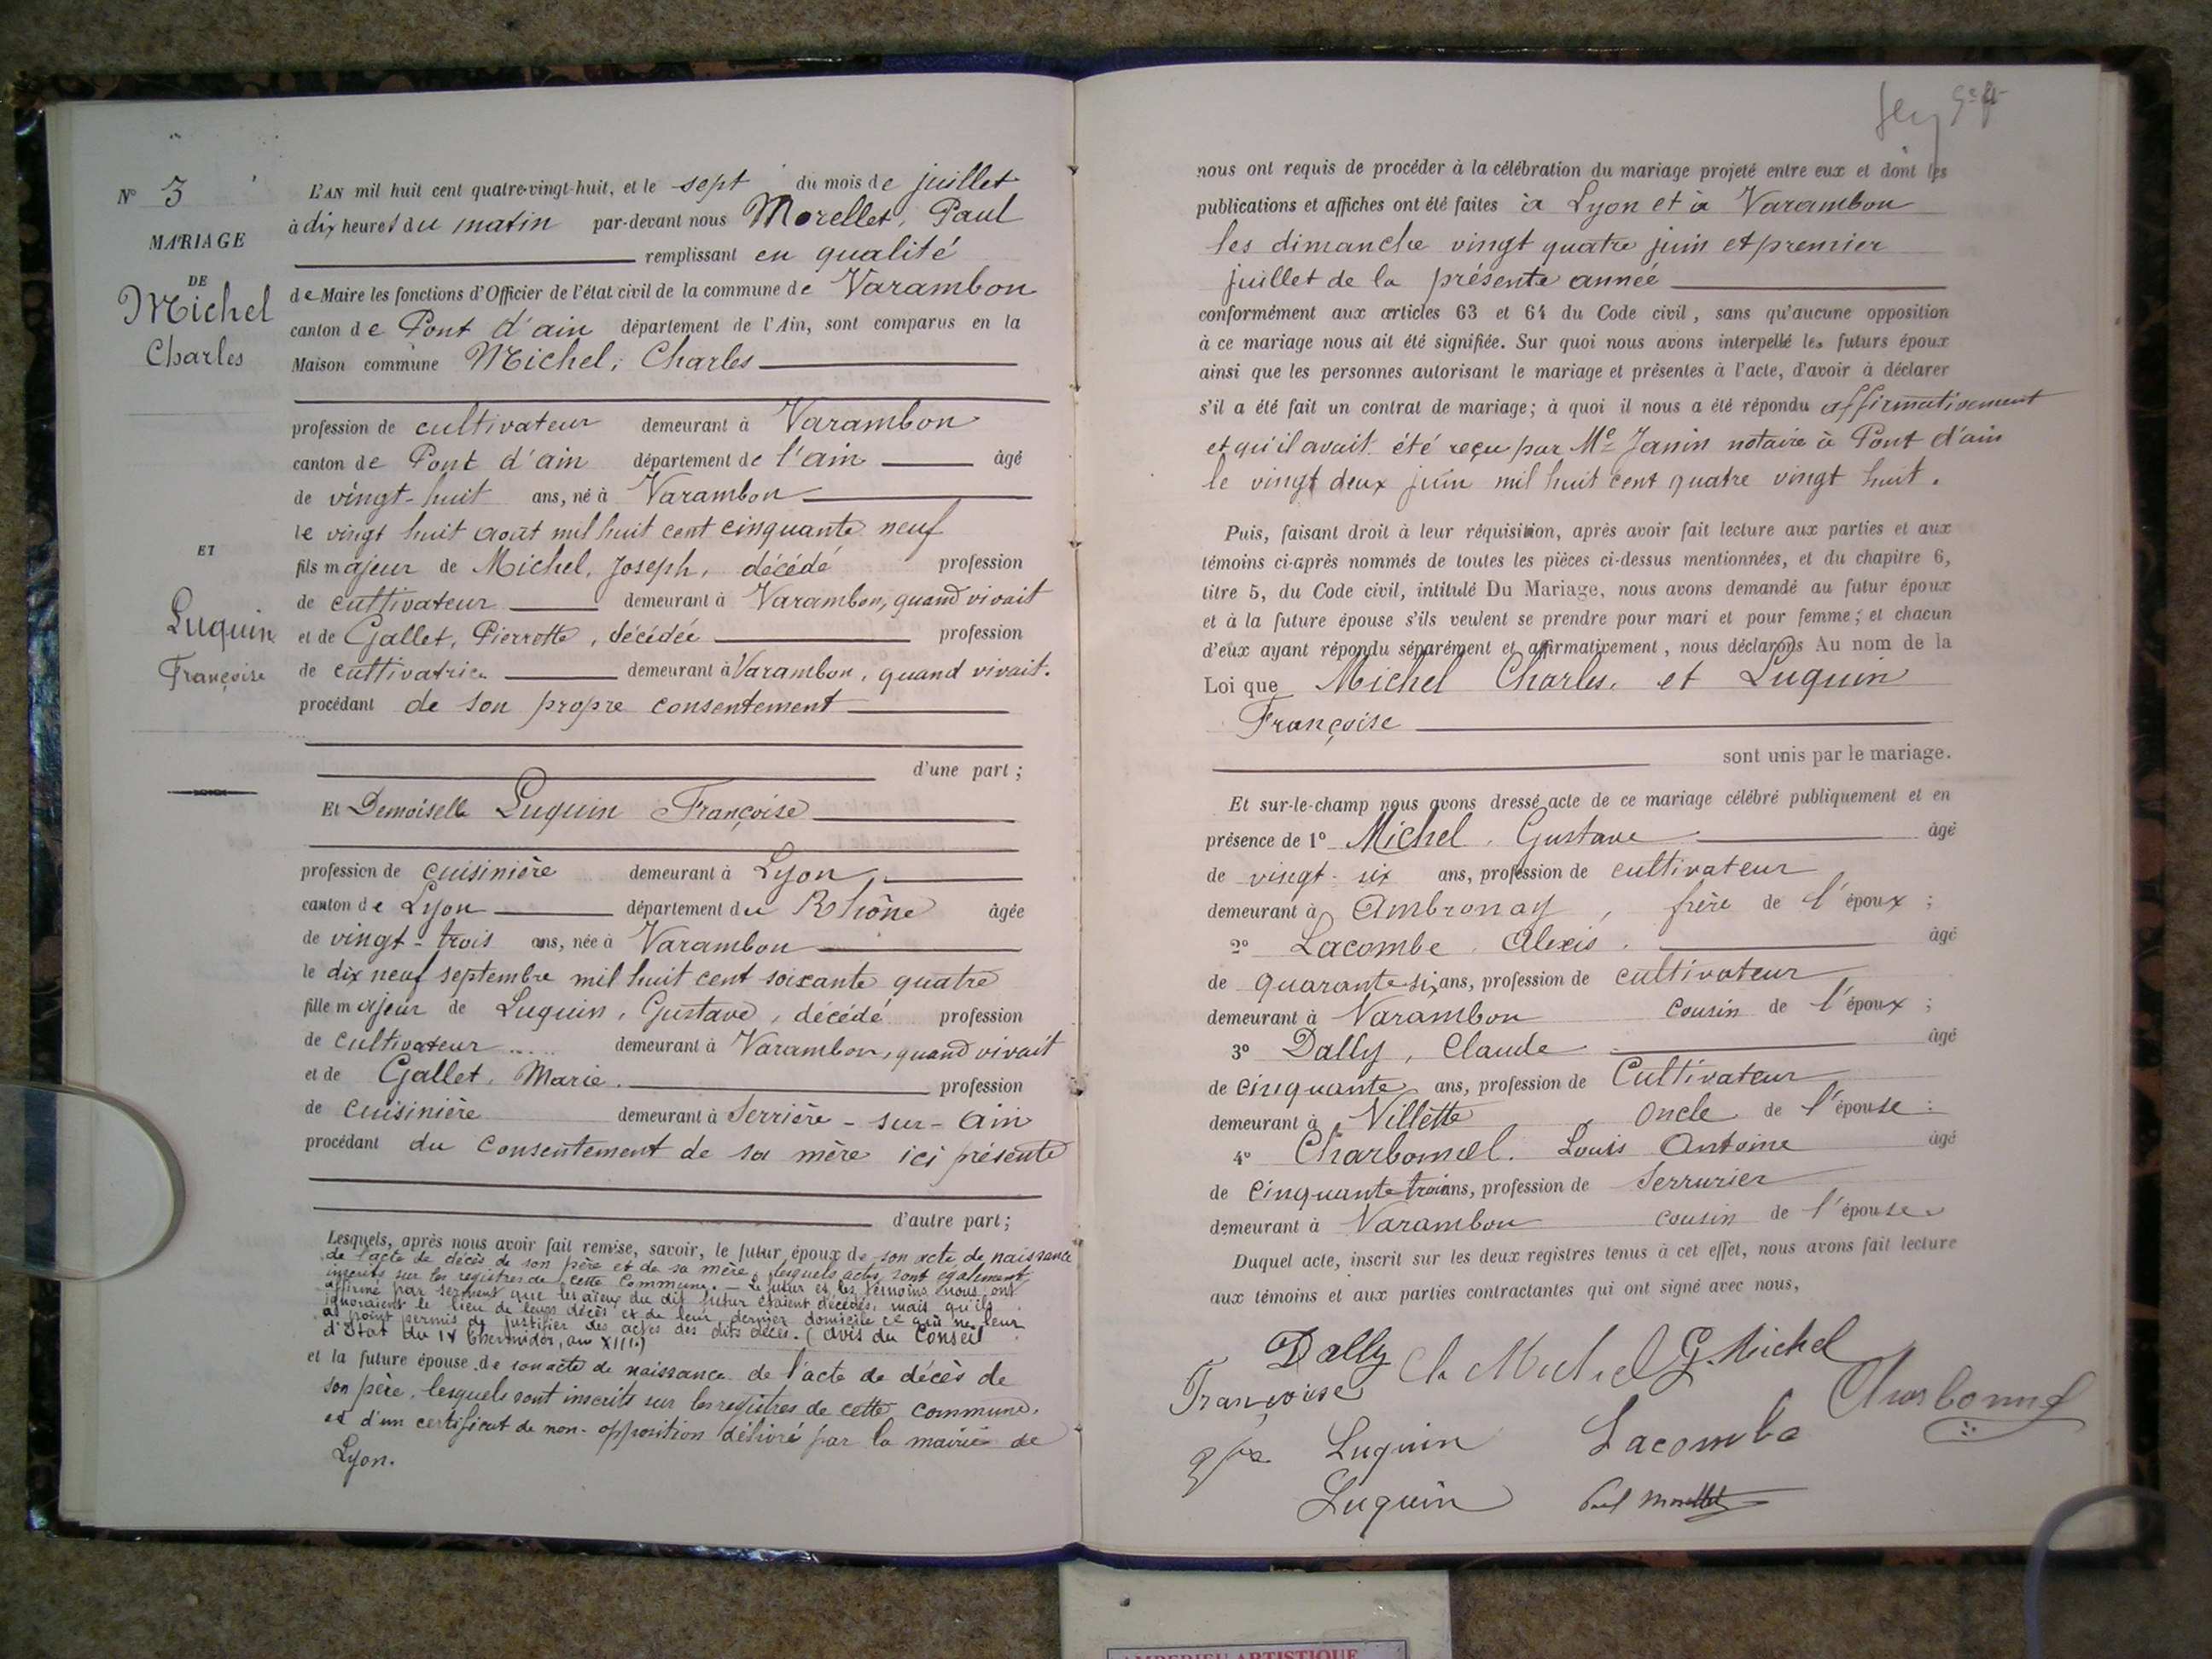 N° 3
MARIAGE
DE
Michel
Charles
ET
Luquin
Françoise
L'AN mil huit cent quatre-vingt-huit, et le sept du mois de juillet
à dix heures du matin par-devant nous Morellet, Paul
remplissant en qualité
de Maire les fonctions d'Officier de l'état civil de la commune de Varambon
canton de Pont d'ain département de l'Ain, sont comparus en la
Maison commune Michel, Charles
profession de cultivateur demeurant à Varambon
canton de Pont d'ain département de l'ain âgé
de vingt-huit ans, né à Varambon
le vingt huit aout mil huit cent cinquante neuf
fils majeur de Michel, Joseph, décédé profession
de cultivateur demeurant à Varambon, quand vivait
et de Gallet, Pierrette, décédée profession
de cultivatrice demeurant à Varambon, quand vivait.
procédant de son propre consentement
d'une part ;
Et Demoiselle Luquin Françoise
profession de cuisinière demeurant à Lyon,
canton de Lyon département du Rhône âgée
de vingt-trois ans, née à Varambon
le dix neuf septembre mil huit cent soixante quatre
fille majeur de Luquin, Gustave, décédé profession
de cultivateur demeurant à Varambon, quand vivait
et de Gallet, Marie. profession
de cuisinière demeurant à Serrière-sur-Ain
procédant du consentement de sa mère ici présente
d'autre part ;
Lesquels, après nous avoir fait remise, savoir, le futur époux de son acte de naissance
de l'acte de décès de son père et de sa mère, lesquels actes sont également
inscrits sur les registres de cette Commune. — Le futur et les témoins nous ont
affirmé par serment que les aïeux du dit futur étaient décédés, mais qu'ils
ignoraient le lieu de leurs décès et de leur dernier domicile ce qui ne leur
a point permis de justifier des actes des dits décès. (Avis du Conseil
d'Etat du IV thermidor, an XIII.)
et la future épouse de son acte de naissance de l'acte de décès de
son père, lesquels sont inscrits sur les registres de cette commune,
et d'un certificat de non-opposition délivré par la mairie de
Lyon.
nous ont requis de procéder à la célébration du mariage projeté entre eux et dont les
publications et affiches ont été faites à Lyon et à Varambon
les dimanche vingt quatre juin et premier
juillet de la présente année
conformément aux articles 63 et 64 du Code civil, sans qu'aucune opposition
à ce mariage nous ait été signifiée. Sur quoi nous avons interpellé les futurs époux
ainsi que les personnes autorisant le mariage et présentes à l'acte, d'avoir à déclarer
s'il a été fait un contrat de mariage; à quoi il nous a été répondu affirmativement
et qu'il avait été reçu par Me Janin notaire à Pont d'ain
le vingt deux juin mil huit cent quatre vingt huit.
Puis, faisant droit à leur réquisition, après avoir fait lecture aux parties et aux
témoins ci-après nommés de toutes les pièces ci-dessus mentionnées, et du chapitre 6,
titre 5, du Code civil, intitulé Du Mariage, nous avons demandé au futur époux
et à la future épouse s'ils veulent se prendre pour mari et pour femme; et chacun
d'eux ayant répondu séparément et affirmativement, nous déclarons Au nom de la
Loi que Michel Charles, et Luquin
Françoise
sont unis par le mariage.
Et sur-le-champ nous avons dressé acte de ce mariage célébré publiquement et en
présence de 1° Michel, Gustave âgé
de vingt-six ans, profession de cultivateur
demeurant à Ambronay, frère de l'époux ;
2° Lacombe Alexis. âgé
de quarante six ans, profession de cultivateur
demeurant à Varambon cousin de l'époux ;
3° Dally, Claude âgé
de cinquante ans, profession de Cultivateur
demeurant à Villette oncle de l'épouse :
4° Charbonnel. Louis Antoine âgé
de cinquante trois ans, profession de Serrurier
demeurant à Varambon cousin de l'épouse
Duquel acte, inscrit sur les deux registres tenus à cet effet, nous avons fait lecture
aux témoins et aux parties contractantes qui ont signé avec nous,
Dally Ch Michel G. Michel
Françoise Charbonnel
Luquin Lacombe
Luquin Paul Morellet
AMBERIEU ARTISTIQUE